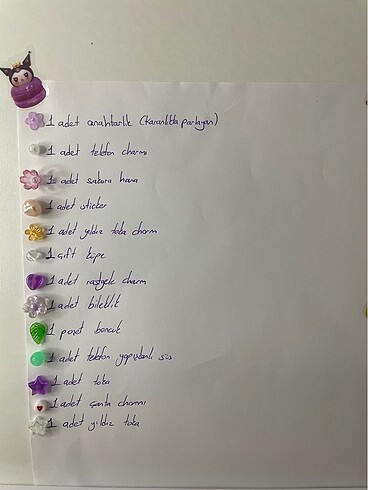 1 adet anahtarlık (Karanlıkta parlayan)
1 adet telefon charmı
1 adet sakura hana
1 adet sticker
1 adet yıldız toka charm
1 çift küpe
1 adet rastgele charm
1 adet bileklik
1 poşet boncuk
1 adet telefon yapışkanlı süs
1 adet toka
1 adet çanta charmı
1 adet yıldız toka